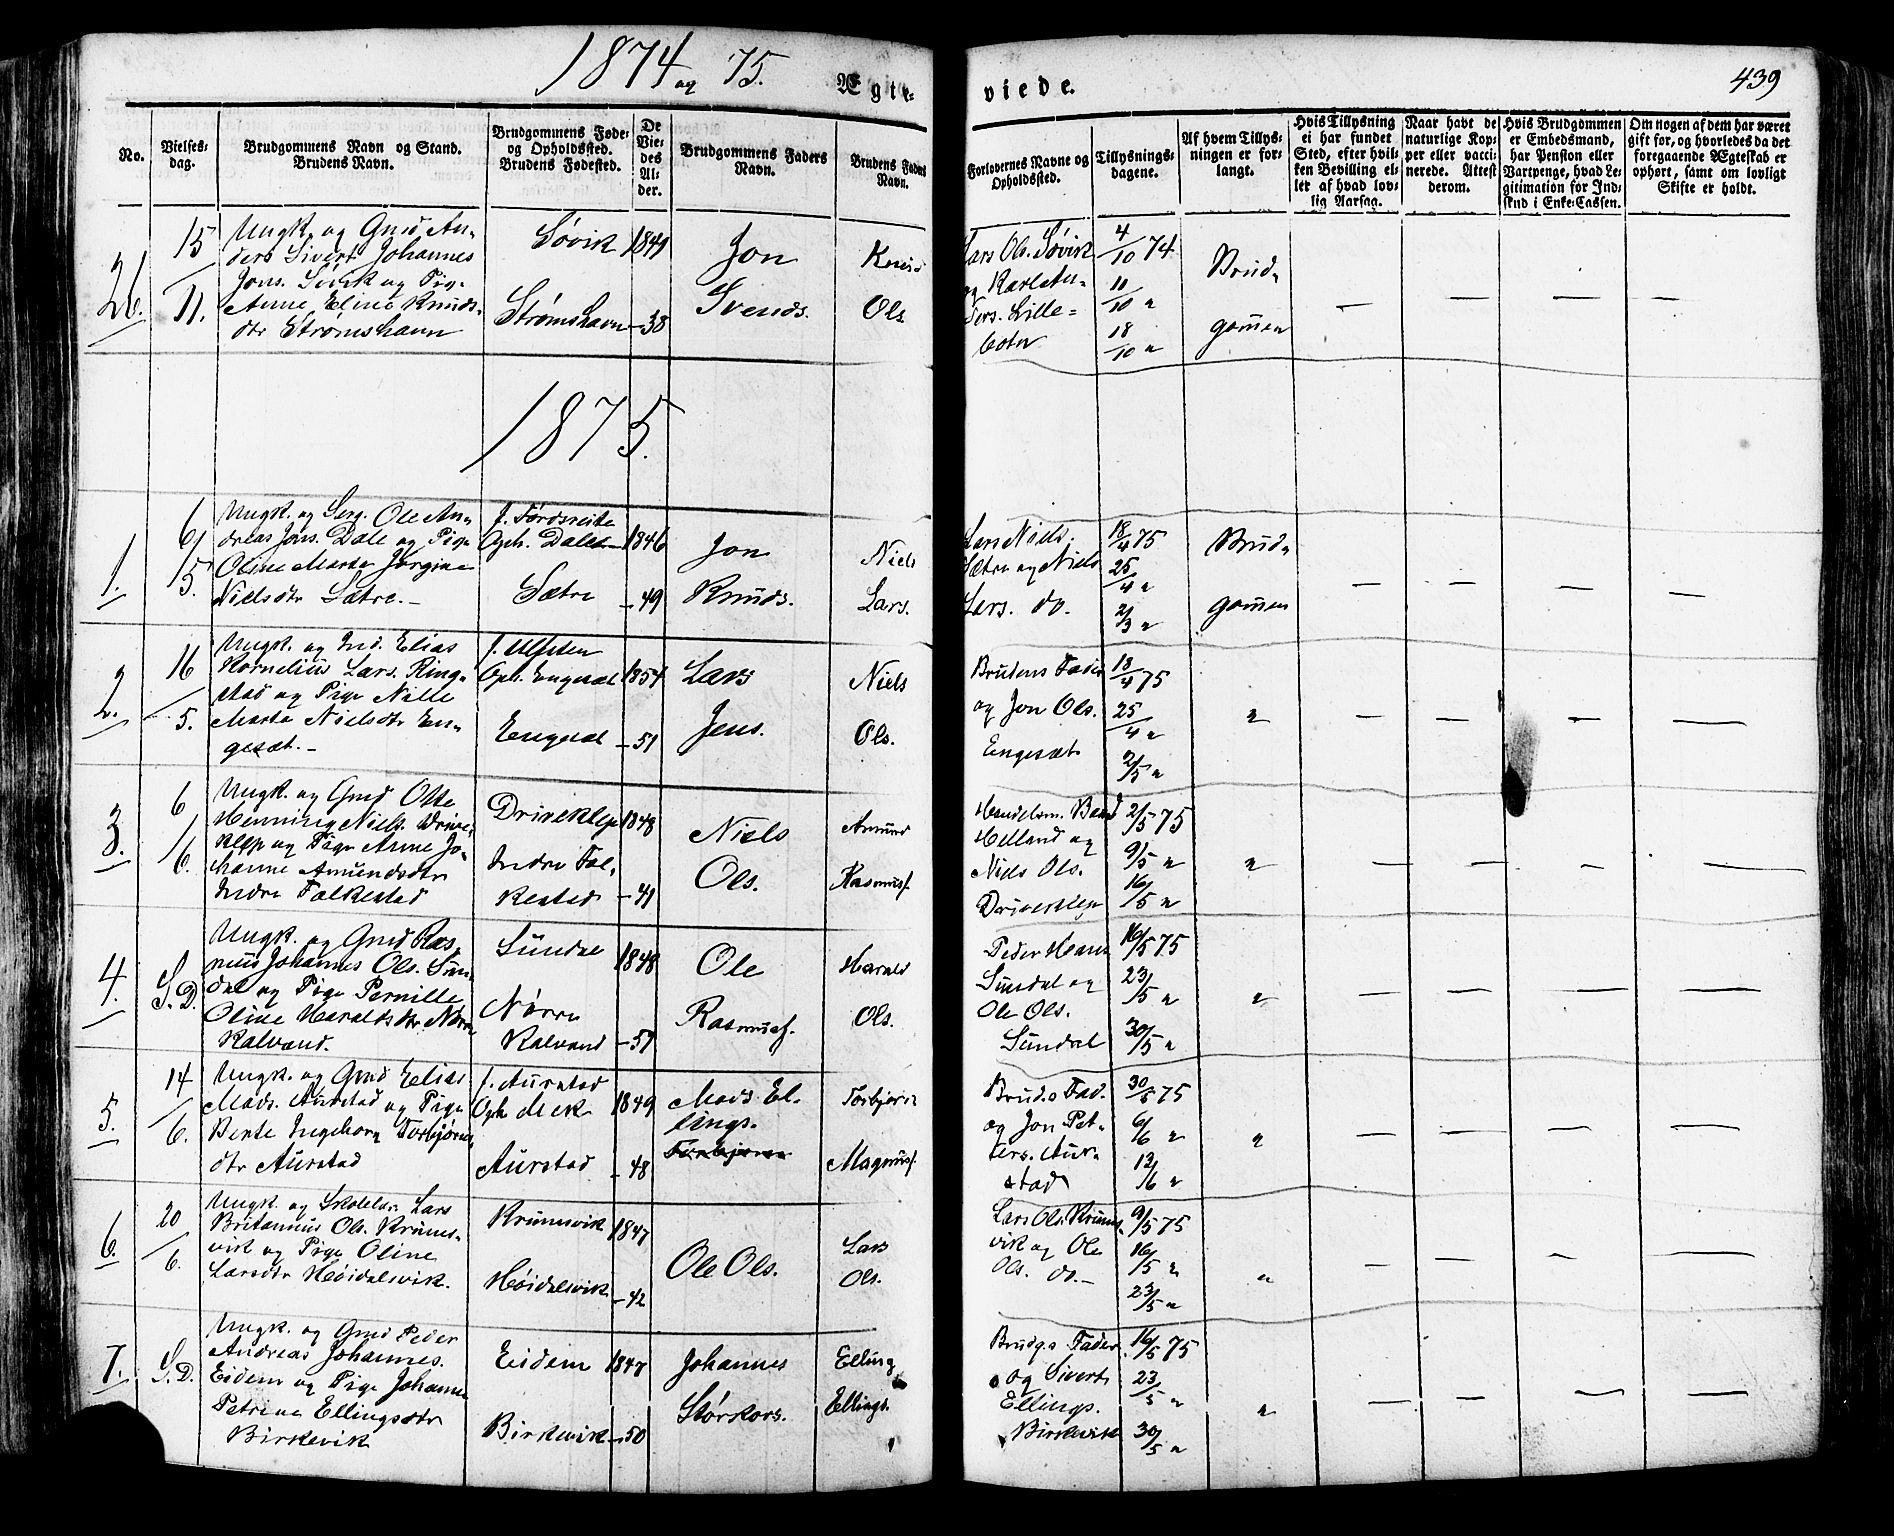 1874 og 75.
Ægte-
viede.
439
No.
Vielses-
dag.
Brudgommens Navn og Stand.
Brudens Navn.
Brudgommens Føde-
og Opholdssted.
Brudens Fødested.
De
Vie-
des
Al-
der.
Brudgommens Faders
Navn.
Brudens Faders
Navn.
Forlovernes Navne og
Opholdssted.
Tillysnings-
dagene.
Af hvem Tillys-
ningen er for-
langt.
Hvis Tillysning
ei har fundet
Sted, efter hvil-
ken Bevilling el-
ler af hvad lov-
lig Aarsag.
Naar havt de
naturlige Kop-
per eller vacci-
nerede. Attest
derom.
Hvis Brudgommen
er Embedsmand,
har Pension eller
Vartpenge, hvad Le-
gitimation for Ind-
skud i Enke-Cassen.
Om nogen af dem har været
gift før, og hvorledes da det
foregaaende Ægteskab er
ophørt, samt om lovligt
Skifte er holdt.
26.
15/11.
Ungk. og Gmd An-
ders Sivert Johannes
Jons. Søvik og Pige
Anne Eline Knuds-
dtr Strømshavn
Søvik
Strømshavn
1849
- 38
Jon
Svends.
Knud
Ols.
Lars Ols. Søvik
og Karl An-
ders. Lille-
4/10 74
11/10 "
18/10 "
Brud-
gommen
1875.
1.
6/5.
Ungk. og Serg. Ole An-
dreas Jons. Dale og Pige
Oline Marta Jørgine
Nielsdtr Sætre.-
f. Fördsreite
Oph. Dale
Sætre
1846
- 49
Jon
Knuds.
Niels
Lars.
Lars Niels.
Sætre og Niels
Lars. do.
18/4 75
25/4 "
2/3 "
Brud-
gommen
2.
16/5.
Ungk. og Ind. Elias
Kornelius Lars. Ring-
stad og Pige Nille
Marta Nielsdtr En-
gesæt.-
Oph. Engesæt
Engesæt
1854
- 51
Lars
Jens.
Niels
Ols.
Brudens Fader
og Jon Ols.
Engesæt
18/4 75
25/4 "
2/5 "
"
3.
6/6.
Ungk. og Gmd Otte
Henning Niels. Drive-
klep og Pige Anne Jo-
hanne Amundsdtr
Indre Falkestad
Driveklep
Indre Fal-
kestad
1848
- 41
Niels
Ols.
Amund
Rasmuss.
Handelsm. Bend
Helland og
Niels Ols.
Driveklep
2/5 75
9/5 "
16/5 "
"
4.
S.D.
Ungk. og Gmd Ras-
mus Johannes Ols. Sun-
dal og Pige Pernille
Oline Haraldsdtr Nørre
Kalvand.
Sundal
Nørre
Kalvand
1848
- 51
Ole
Rasmuss.
Harald
Ols.
Peder Hans
Sundal og
Ole Ols.
Sundal
16/5 75
23/5 "
30/5 "
"
5.
14/6.
Ungk. og Gmd Elias
Mads. Aurstad og Pige
Bente Ingeborg Torbjörns-
dtr Aurstad
f. Aurstad
Oph. Mek
Aurstad
1849
- 48
Mads El-
lings.
Torbjörn
Torbjörn
Magnuss.
Bruds Fad.
og Jon Pet-
ters. Aur-
stad
30/5 75
6/6 "
13/6 "
"
6.
20/6.
Ungk. og Skolelær. Lars
Britannus Ols. Krums-
vik og Pige Oline
Larsdtr Høidalsvik.
Krumsvik
Høidalsvik
1847
- 42
Ole Ols.
Lars
Ols.
Lars Ols. Krums-
vik og Ole
Ols. do.-
9/5 75
16/5 "
23/5 "
"
7.
S.D.
Ungk. og Gmd Peder
Andreas Johannes.
Eidem og Pige Johanne
Petrine Ellingsdtr
Birkevik
Eidem
Birkevik
1847
- 50
Johannes
Størkors.
Elling
Ellings.
Brudg.s Fader
og Sivert
Ellings.
Birkevik
16/5 75
23/5 "
30/5 "
"